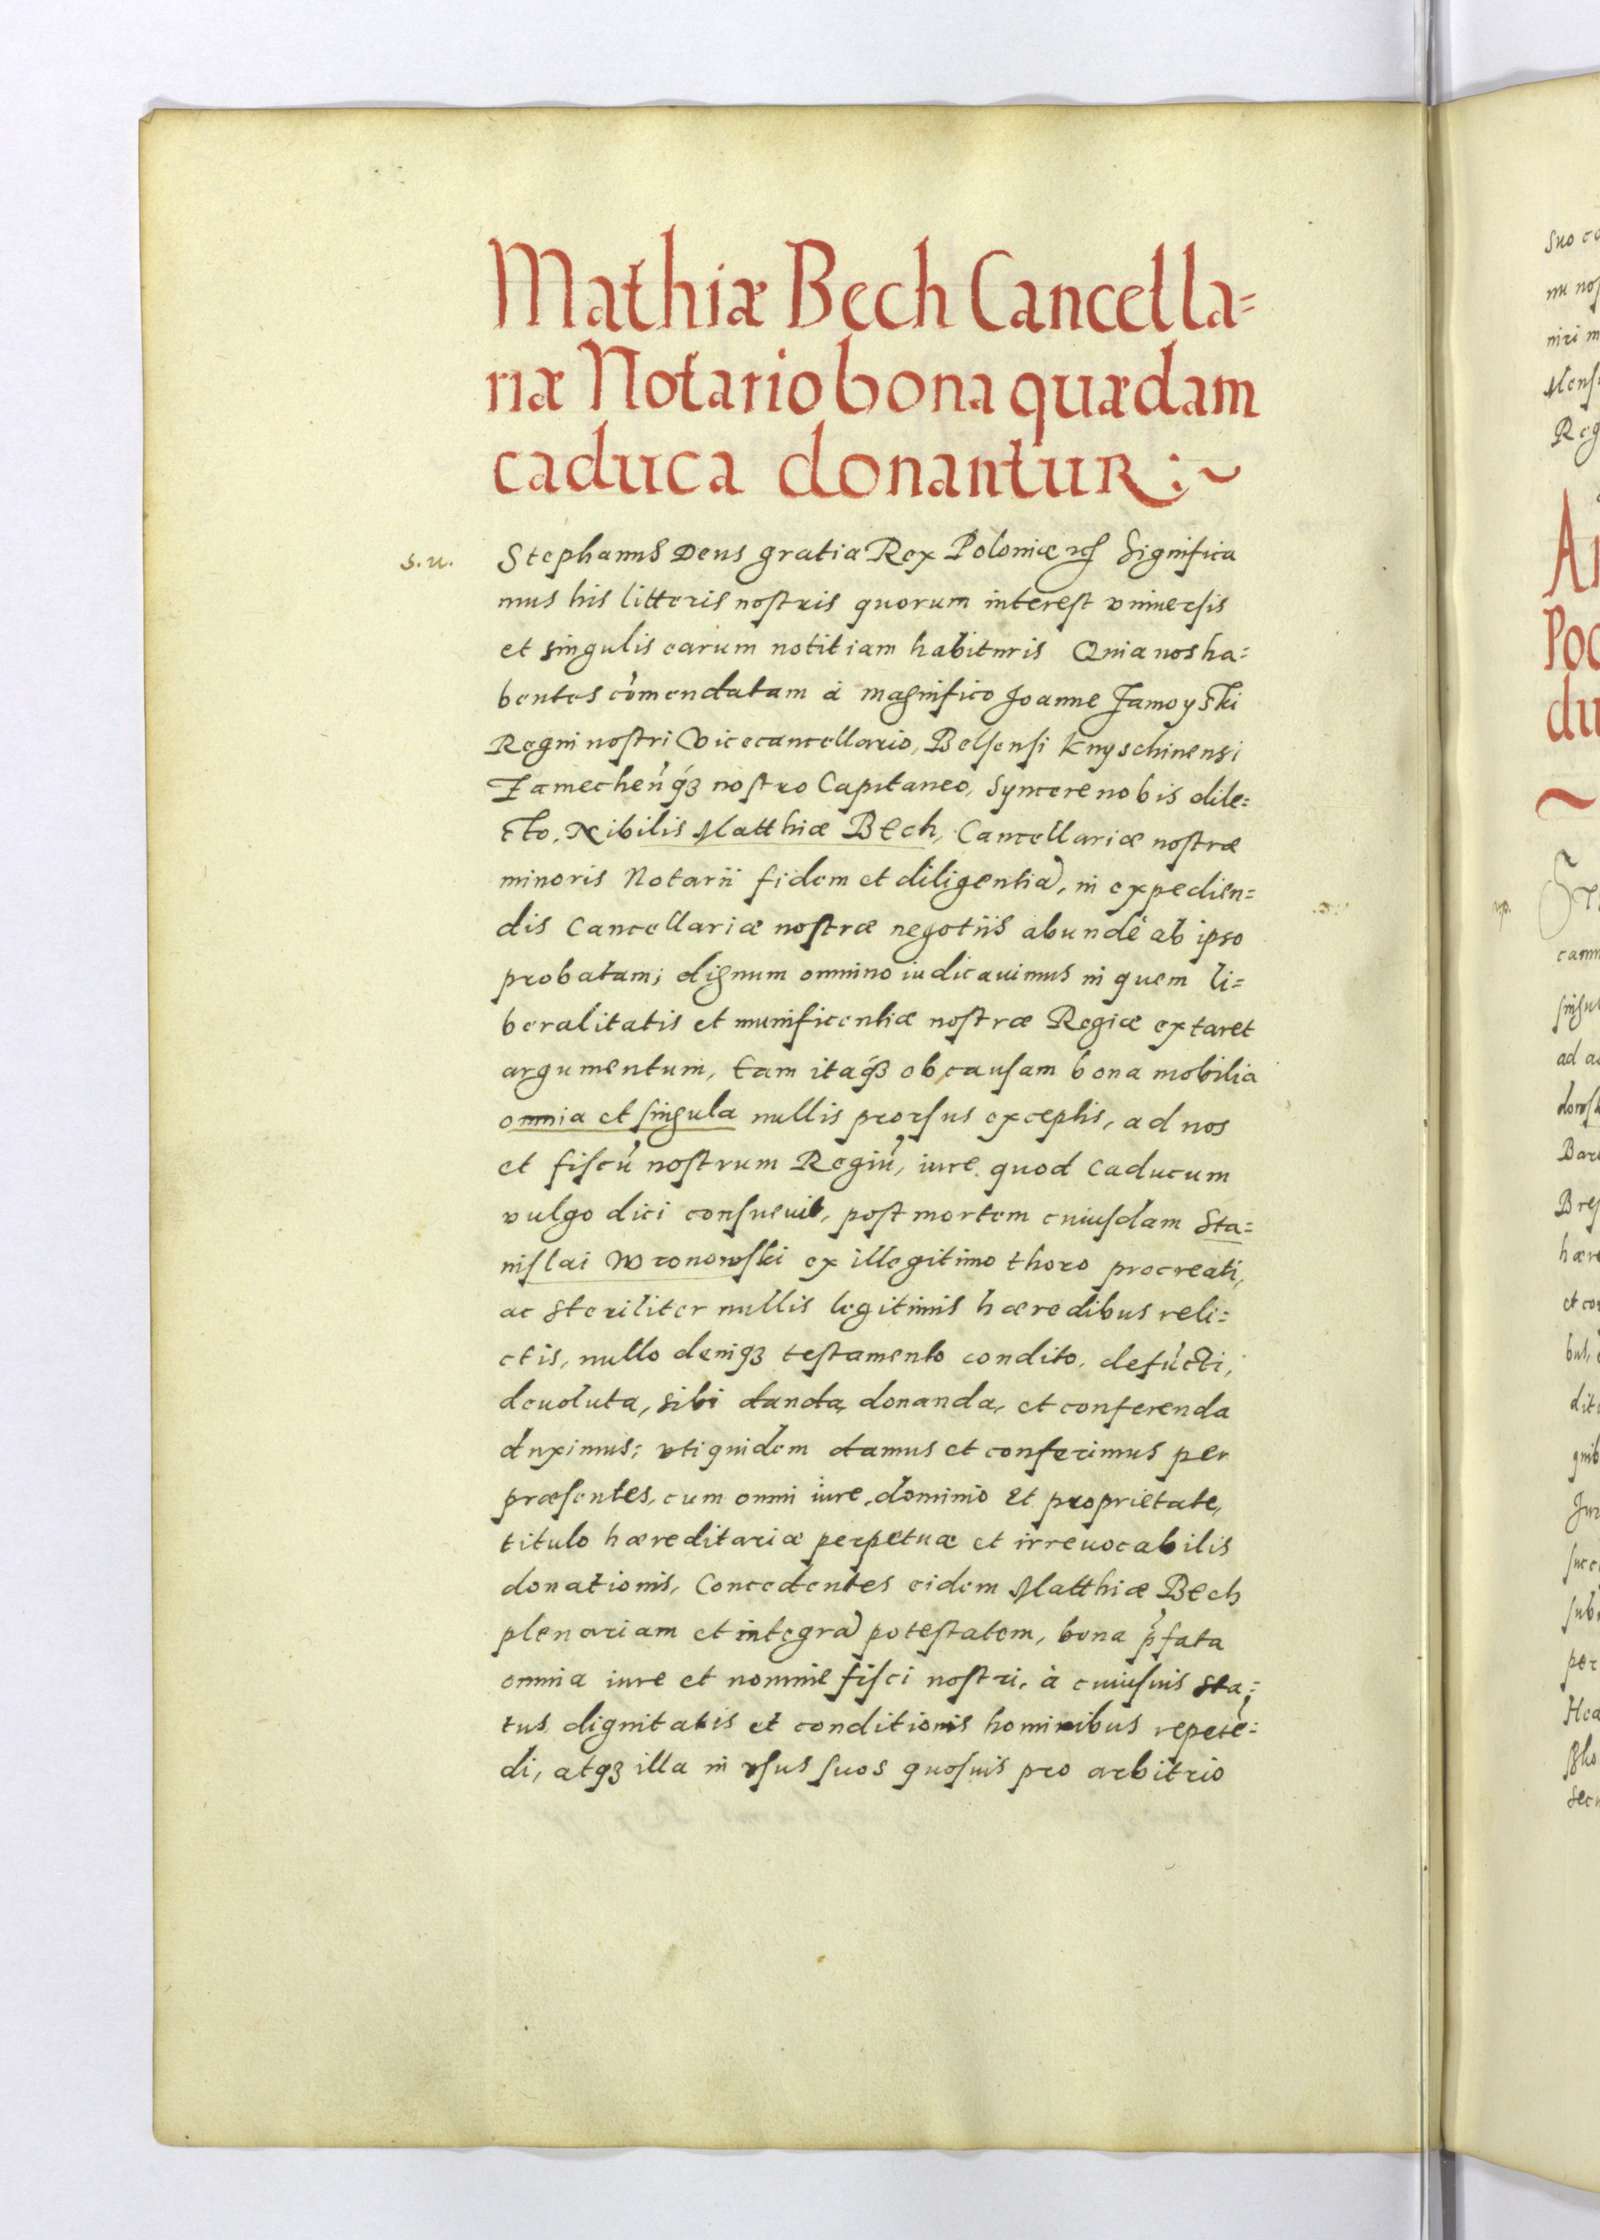 Mathiæ Bech Cancella=
riæ Notario bona quædam
caduca donantur :~
s. u.
Stephanus Deus gratia Rex Poloniæ etc Significa
mus his litteris nostris quorum interest vniuersis
et singulis earum notitiam habituris Quia nos ha=
bentes cōmendatam à magnifico Joanne Zamoyski
Regni nostri Vicecancellario, Belsensi Knyschinensi
Zamechen̄ q́ꝫ nostro Capitaneo, Syncere nobis dile=
cto, Nibilis Matthiæ Bech, Cancellariæ nostræ
minoris Notarii fidem et diligentiā, in expedien=
dis Cancellariæ nostræ negotiis abundè ab ipso
probatam; dignum omnino iudicauimus in quem li=
beralitatis et munificentiæ nostræ Regiæ extaret
argumentum, Eam itaq́ꝫ ob causam bona mobilia
omnia et singula nullis prorsus exceptis, ad nos
et fiscū nostrum Regiū, iure quod Caducum
vulgo dici consueuit, post mortem cuiusdam Sta=
nislai Wronowski ex illegitimo thoro procreati,
ac steriliter nullis legitimis hæredibus reli=
ctis, nullo deniqꝫ testamento condito, defūcti,
deuoluta, sibi danda, donanda, et conferenda
duximus; vti quidem damus et conferimus per
præsentes, cum omni iure, dominio et proprietate,
titulo hæreditariæ perpetuæ et irreuocabilis
donationis, Concedentes eidem Matthiæ Bech
plenariam et integrā potestatem, bona p̄fata
omnia iure et nomine fisci nostri, à cuiusuis sta=
tus dignitatis et conditionis hominibus repetē=
di, atqꝫ illa in vsus suos quosuis pro arbitrio